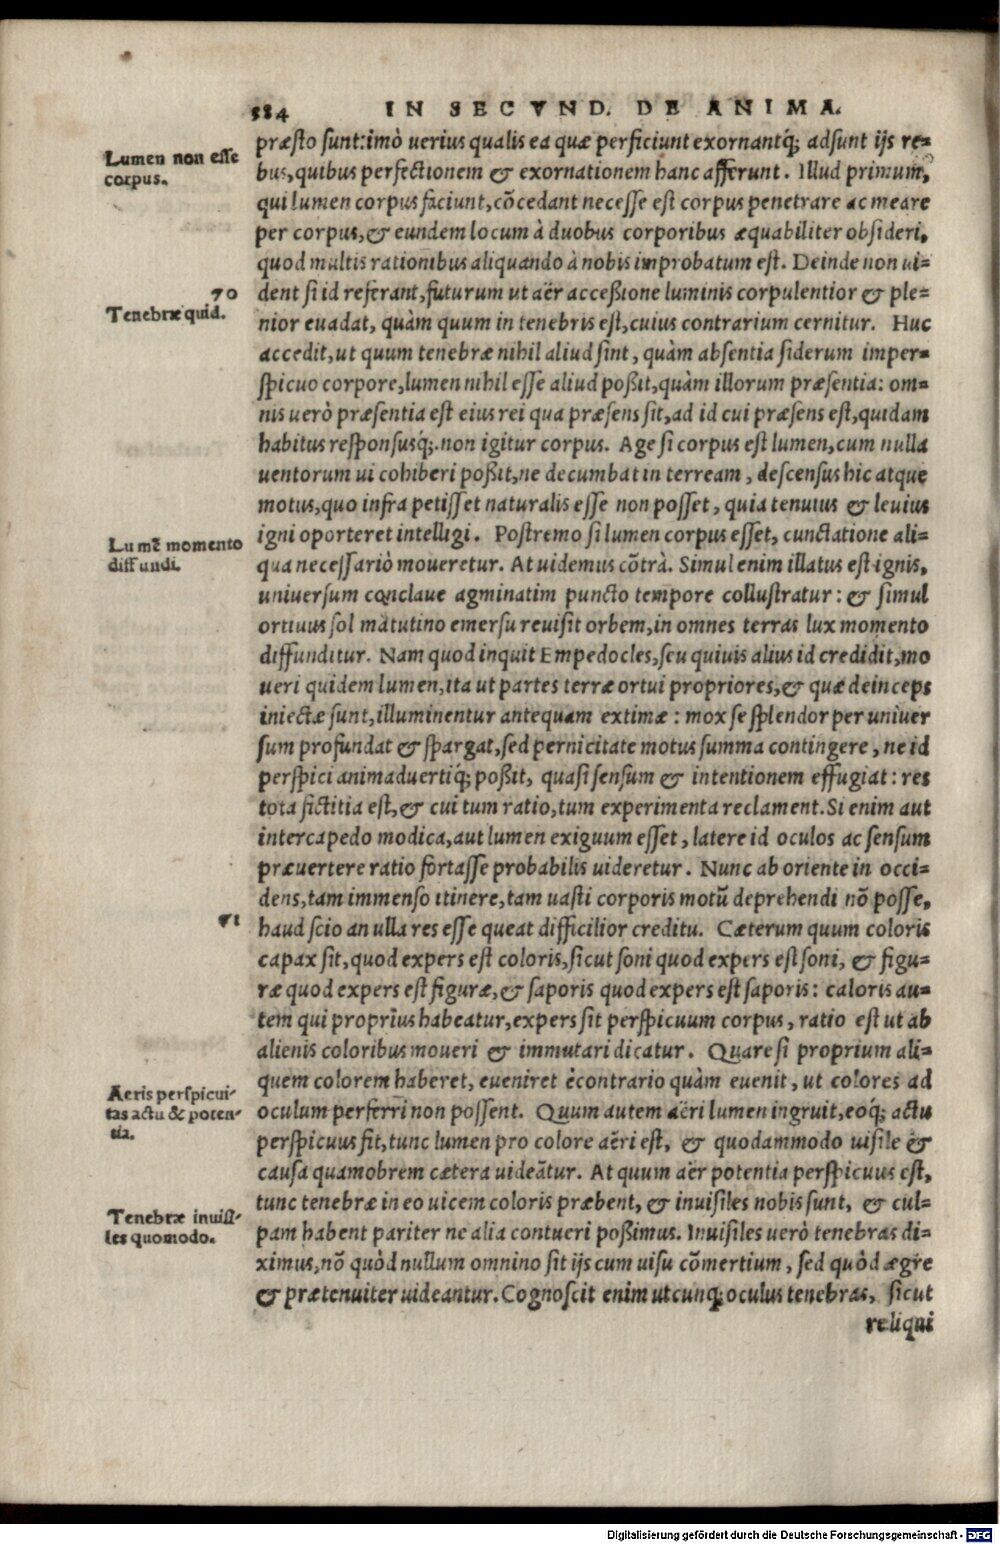 584 IN SECVND. DE ANIMA.
præsto sunt: imò uerius qualis ea quæ perficiunt exornantq́; adsunt ijs re-
Lumen non esse
corpus.
bus, quibus perfectionem & exornationem hanc afferunt. Illud primum,
qui lumen corpus faciunt, cōcedant necesse est corpus penetrare ac meare
per corpus, & eundem locum à duobus corporibus æquabiliter obsideri,
quod multis rationibus aliquando à nobis improbatum est. Deinde non ui-
70
dent si id referant, futurum ut aër accessione luminis corpulentior & ple-
Tenebræ quid.
nior euadat, quàm quum in tenebris est, cuius contrarium cernitur. Huc
accedit, ut quum tenebræ nihil aliud sint, quàm absentia siderum imper-
spicuo corpore, lumen nihil esse aliud possit, quàm illorum præsentia: om-
nis uerò præsentia est eius rei qua præsens sit, ad id cui præsens est, quidam
habitus responsusq́;. non igitur corpus. Age si corpus est lumen, cum nulla
uentorum ui cohiberi possit, ne decumbat in terream, descensus hic atque
motus, quo infra petisset naturalis esse non posset, quia tenuius & leuius
igni oporteret intelligi. Postremo si lumen corpus esset, cunctatione ali-
Lumē momento
diffundi.
qua necessariò moueretur. At uidemus cōtrà. Simul enim illatus est ignis,
uniuersum conclaue agminatim puncto tempore collustratur: & simul
ortiuus sol matutino emersu reuisit orbem, in omnes terras lux momento
diffunditur. Nam quod inquit Empedocles, seu quiuis alius id credidit, mo
ueri quidem lumen, ita ut partes terræ ortui propriores, & quæ deinceps
iniectæ sunt, illuminentur antequam extimæ: mox se splendor per uniuer
sum profundat & spargat, sed pernicitate motus summa contingere, ne id
perspici animaduertiq́; possit, quasi sensum & intentionem effugiat: res
tota fictitia est, & cui tum ratio, tum experimenta reclament. Si enim aut
intercapedo modica, aut lumen exiguum esset, latere id oculos ac sensum
præuertere ratio fortasse probabilis uideretur. Nunc ab oriente in occi-
dens, tam immenso itinere, tam uasti corporis motū deprehendi nō posse,
71
haud scio an ulla res esse queat difficilior creditu. Cæterum quum coloris
capax sit, quod expers est coloris, sicut soni quod expers est soni, & figu-
ræ quod expers est figuræ, & saporis quod expers est saporis: caloris au-
tem qui proprius habeatur, expers sit perspicuum corpus, ratio est ut ab
alienis coloribus moueri & immutari dicatur. Quare si proprium ali-
Aeris perspicui-
tas actu & poten-
tia.
quem colorem haberet, eueniret ècontrario quàm euenit, ut colores ad
oculum perferri non possent. Quum autem aëri lumen ingruit, eoq́; actu
perspicuus fit, tunc lumen pro colore aëri est, & quodammodo uisile &
causa quamobrem cætera uideātur. At quum aër potentia perspicuus est,
tunc tenebræ in eo uicem coloris præbent, & inuisiles nobis sunt, & cul-
Tenebræ inuisi-
les quomodo.
pam habent pariter ne alia contueri possimus. Inuisiles uerò tenebras di-
ximus, nō quòd nullum omnino sit ijs cum uisu cōmertium, sed quòd ægre
& prætenuiter uideantur. Cognoscit enim utcunq; oculus tenebras, sicut
reliqui
Digitalisierung gefördert durch die Deutsche Forschungsgemeinschaft - DFG